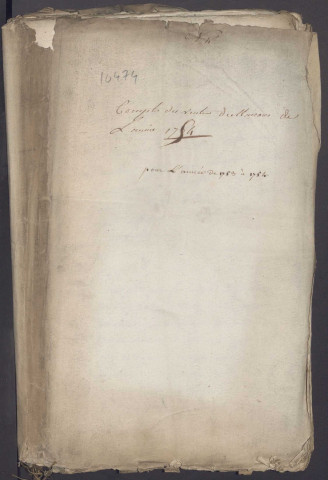 10474
Compte des rentes de
L'année 1754
pour L'année de 1753 à 1754